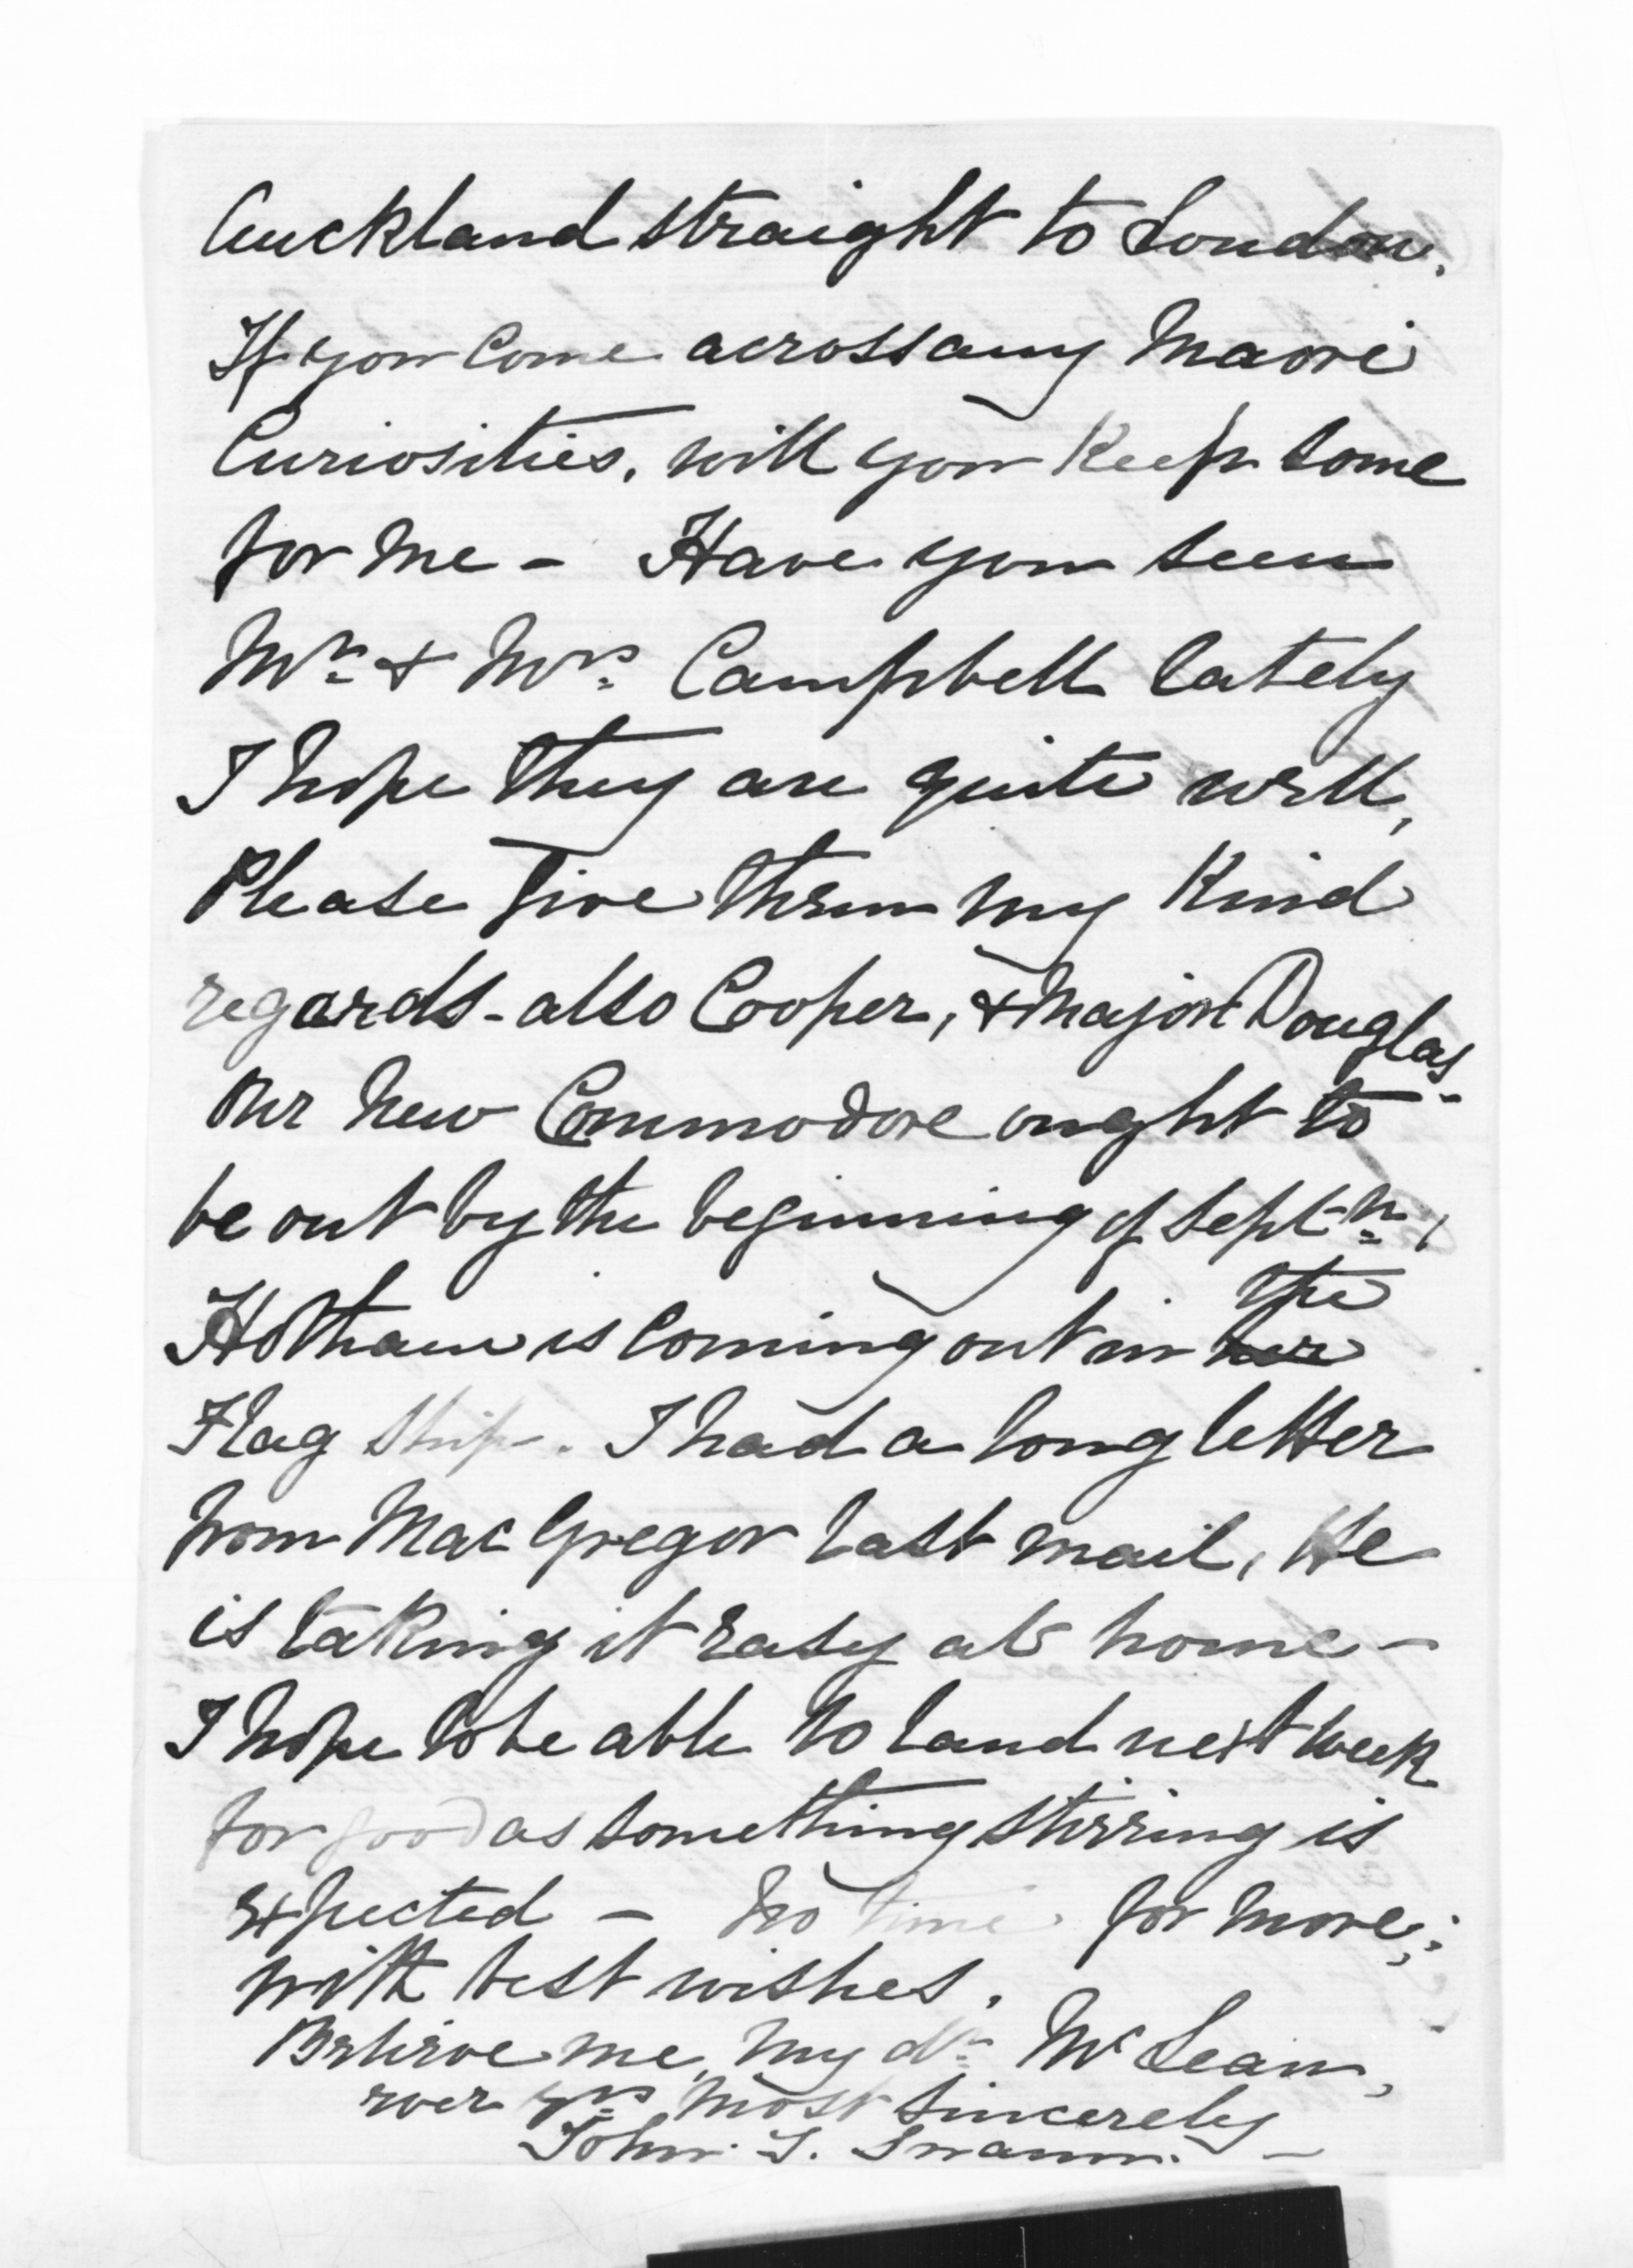 Auckland straight to London.
If you come across any Maori
Curiosities, will you keep some
for me - Have you seen
Mr. & Mrs. Campbell lately
I hope they are quite well,
Please give them my Kind
regards - also Cooper, & Major Douglas -
Our New Commodore ought to
be out by the beginning of Septr.,
Hotham is coming out in her the
Flag Ship. I had a long letter
from MacGregor last mail, He
is taking it easy at home -
I hope to be able to land next week
for good as something stirring is
expected - No time for more,
with best wishes.
Believe me, my dr. McLean,
ever yrs. most sincerely -
John. T. Swann.